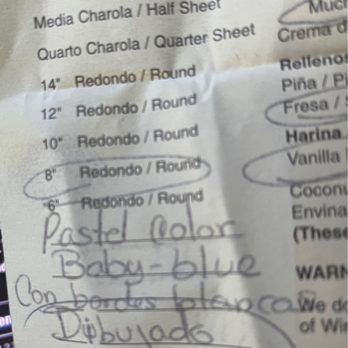 Media Charola / Half Sheet
Quarto Charola / Quarter Sheet
14" Redondo / Round
12" Redondo / Round
10" Redondo / Round
8" Redondo / Round
6" Redondo / Round
Pastel Color
Baby-blue
Con bordes blancas
Dibujado
Crema d
Rellenos
Piña / Pi
Fresa /
Harina
Vanilla
Coconu
Envina
(These
WARN
We do
of Wi